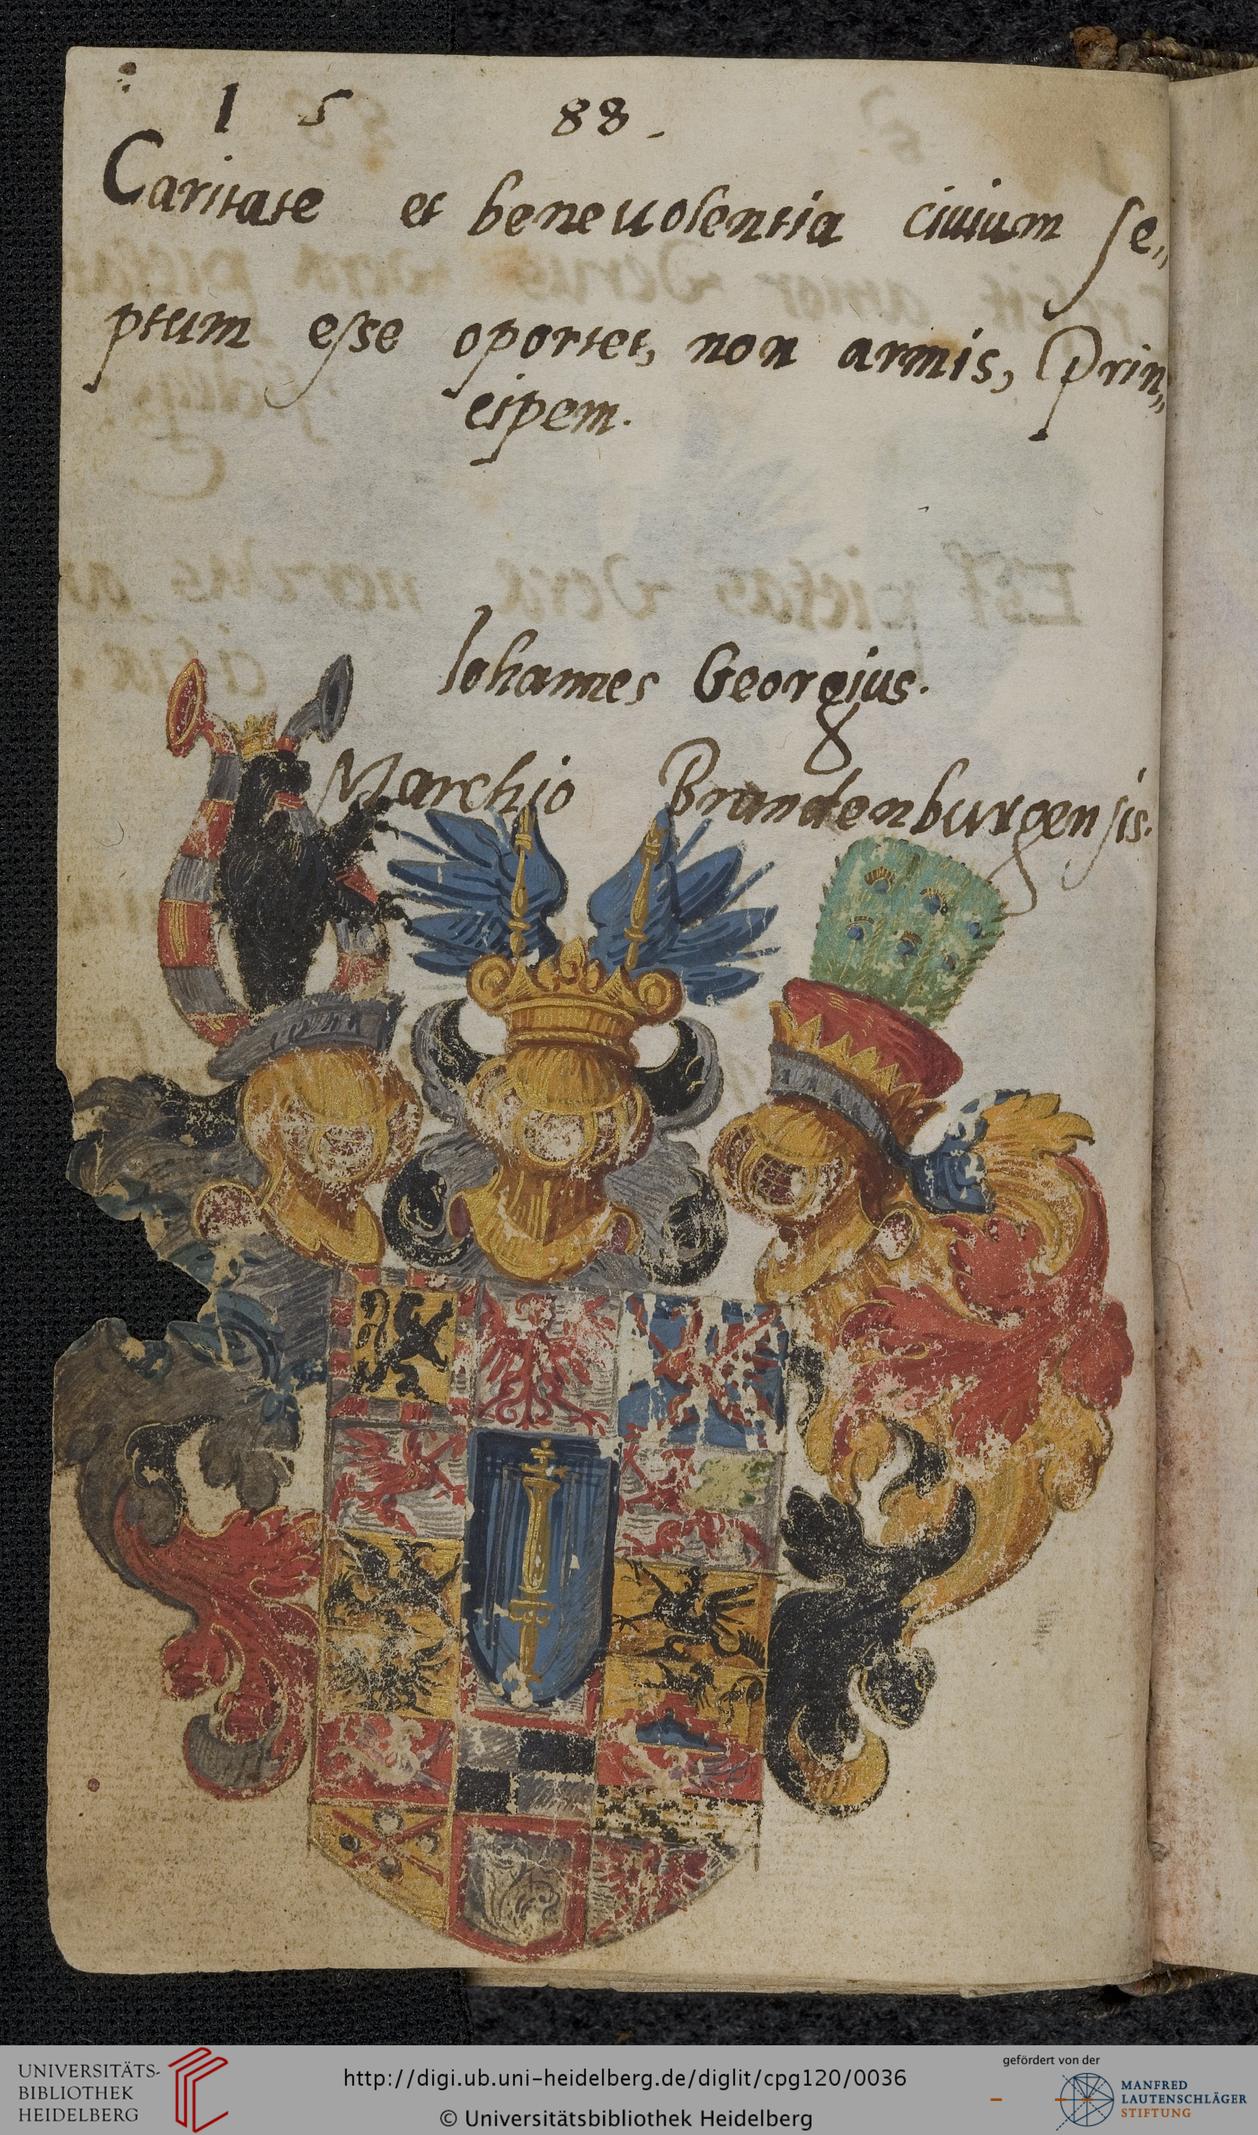 1 5 88.
Caritate et beneuolentia ciuium se„
ptum esse oportet, non armis, Prin„
cipem.
Iohannes Georgius.
Marchio Brandenburgensis.
UNIVERSITÄTS-
BIBLIOTHEK
HEIDELBERG
http://digi.ub.uni-heidelberg.de/diglit/cpg120/0036
© Universitätsbibliothek Heidelberg
gefördert von der
MANFRED
LAUTENSCHLÄGER
STIFTUNG